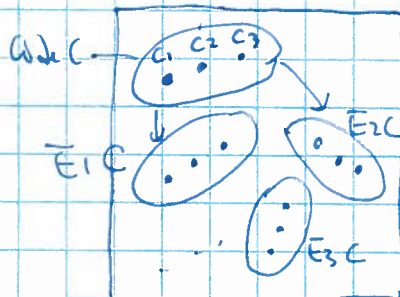 Code C
C1 C2 C3
E1 C
E2C
E3 C